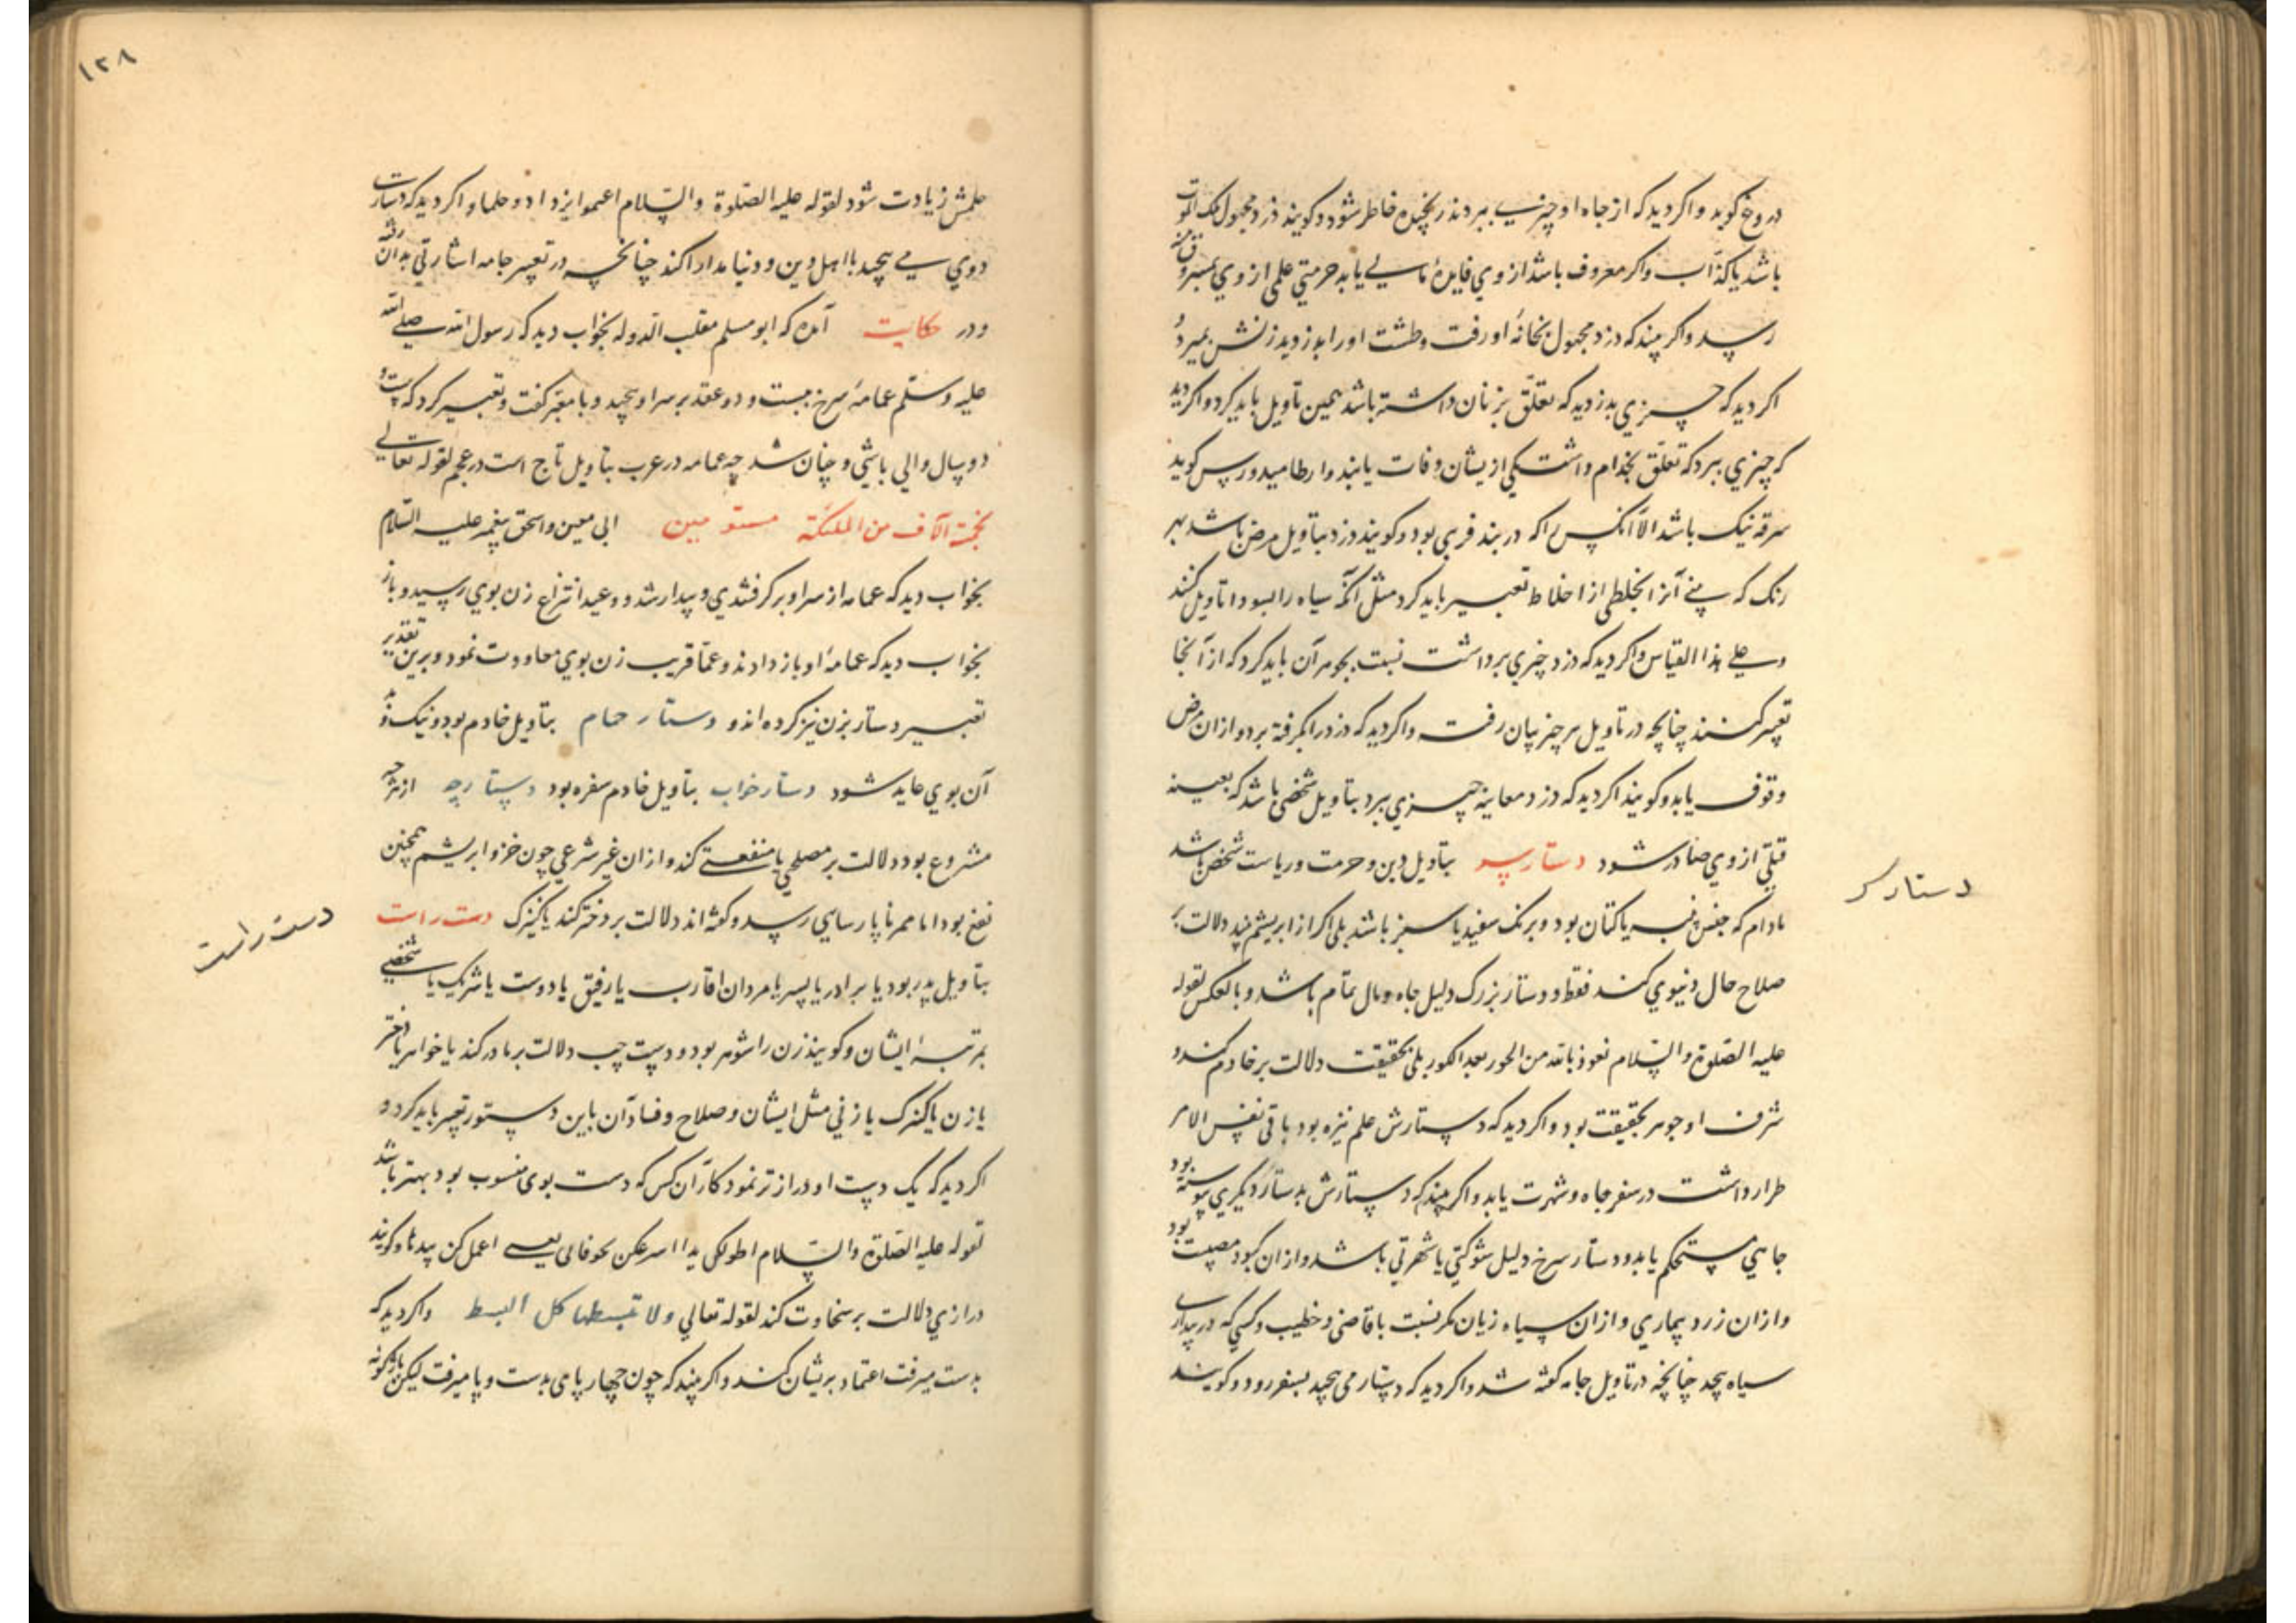 دروغ گوید و اگر دید که از جاه او چیزی ببردند رنجیده خاطر شود و گویند دزد مجهول ملک الموت
باشد یا کذاب و اگر معروف باشد از وی فایدهٔ یابد حرمتی علمی از وی
رسد و اگر بیند که دزد مجهول بخانهٔ او رفت و طشت او را بدزدید زنش بمیرد و
اگر دید که چیزی بدزدید که تعلق بزنان داشته باشد همین تأویل باید کرد و اگر دید
که چیزی ببرد که تعلق بخدام داشت یکی ازیشان وفات یابند و ارطامیدورس گوید
سرقه نیک باشد الا آنکس را که در بند فریبی بود و گویند دزد بتأویل مرض باشد بهر
رنگ که بینی آنرا بخلطی از اخلاط تعبیر باید کرد مثل آنکه سیاه را بسودا تأویل کنند
وعلی هذا القیاس و اگر دید که دزد چیزی برداشت نسبت بجوهر آن باید کرد که از آنجا
تعبیر کنند چنانچه در تأویل هر چیز بیان رفت و اگر دید که دزد را بگرفته برد و از ان مرض
وقوف یابد و گویند اگر دید که دزد معاینه چیزی ببرد بتأویل شخصی باشد که بعینه
قتلی از وی صادر شود دستار سر بتأویل دین و حرمت و ریاست شخص باشد
دستار سر
مادام که جنس پنبه یا کتان بود و برنک سفید یا سبز باشد بلی اگر از ابریشم بیند دلالت بر
صلاح حال دنیوی کند فقط و دستار بزرگ دلیل جاه و مال تمام باشد و بالعکس لقوله
علیه الصلوة والسلام نعوذ بالله من الحور بعد الکور بلی بحقیقت دلالت بر خادم کند و
شرف او جوهر بحقیقت بود و اگر دید که دستارش علم نیزه بود باقی نفس الامر
طرار داشت در سفر جاه و شهرت یابد و اگر بیند که دستارش بدستار دیگری پیوسته بود
جاهی مستحکم یابد و دستار سرخ دلیل شوکتی یا شهرتی باشد و از ان کبود مصیبت بود
و از ان زرد بیماری و از ان سیاه زیان مگر نسبت با قاضی و خطیب و کسی که در بیداری
سیاه پیچد چنانچه در تأویل جامه گفته شد و اگر دید که دستار می پیچید بسفر رود و گویند
۱۲۸
حلمش زیادت شود لقوله علیه الصلوة والسلام اعتموا تزدادوا حلما و اگر دید که دستار
دوی می پیچید با اهل دین و دنیا مدارا کند چنانچه در تعبیر جامه اشارتی بدان رفته
و در حکایت آمده که ابو مسلم مقلب الدوله بخواب دید که رسول الله صلی الله
علیه وسلم عمامهٔ سرخ ببست و دو عقد بر سر او پیچید و با معبر گفت و تعبیر کرد که بیست و
دو سال والی باشی و چنان شد چه عمامه در عرب بتأویل تاج است در عجم لقوله تعالی
بخمسة آلاف من الملئکة مسومین ابی معین و اسحق پیغمبر علیه السلام
بخواب دید که عمامه از سر او بر گرفتندی و بیدار شد و وعید انتزاع زن بوی رسید و باز
بخواب دید که عمامهٔ او باز دادند و عما قریب زن بوی معاودت نمود و برین تقدیر
تعبیر دستار بزن نیز کرده اند و دستار حمام بتأویل خادم بود و نیک و بد
آن بوی عاید شود دستار خوان بتأویل خادم سفره بود دستارچه از هرچه
مشروع بود دلالت بر مصلحی یا منفعتی کند و از ان غیر شرعی چون خز و ابریشم همچنین
نفع بود اما نا پارسایی رسد و گفته اند دلالت بر دختر کند یا کنیزک دست راست
دست راست
بتأویل پدر بود یا برادر یا پسر یا مردان اقارب یا رفیق یا دوست یا شریک یا شخصی
بمرتبهٔ ایشان و گویند زن را شوهر بود و دست چپ دلالت بر مادر کند یا خواهر یا دختر
یا زن یا کنیزک یا زنی مثل ایشان و صلاح و فساد آن باین دستور تعبیر باید کرد و
اگر دید که یک دست او درازتر نمود کار آن کس که دست بوی منسوب بود بهتر باشد
لقوله علیه الصلوة والسلام اطولکن یدا اسرعکن لحوقا بی یعنی اعملکن یدا و گویند
درازی دلالت بر سخاوت کند لقوله تعالی ولا تبسطها کل البسط و اگر دید که
بدست میرفت اعتماد بریشان کند و اگر بیند که چون چهار پای بدست و پا میرفت لیکن باژگونه